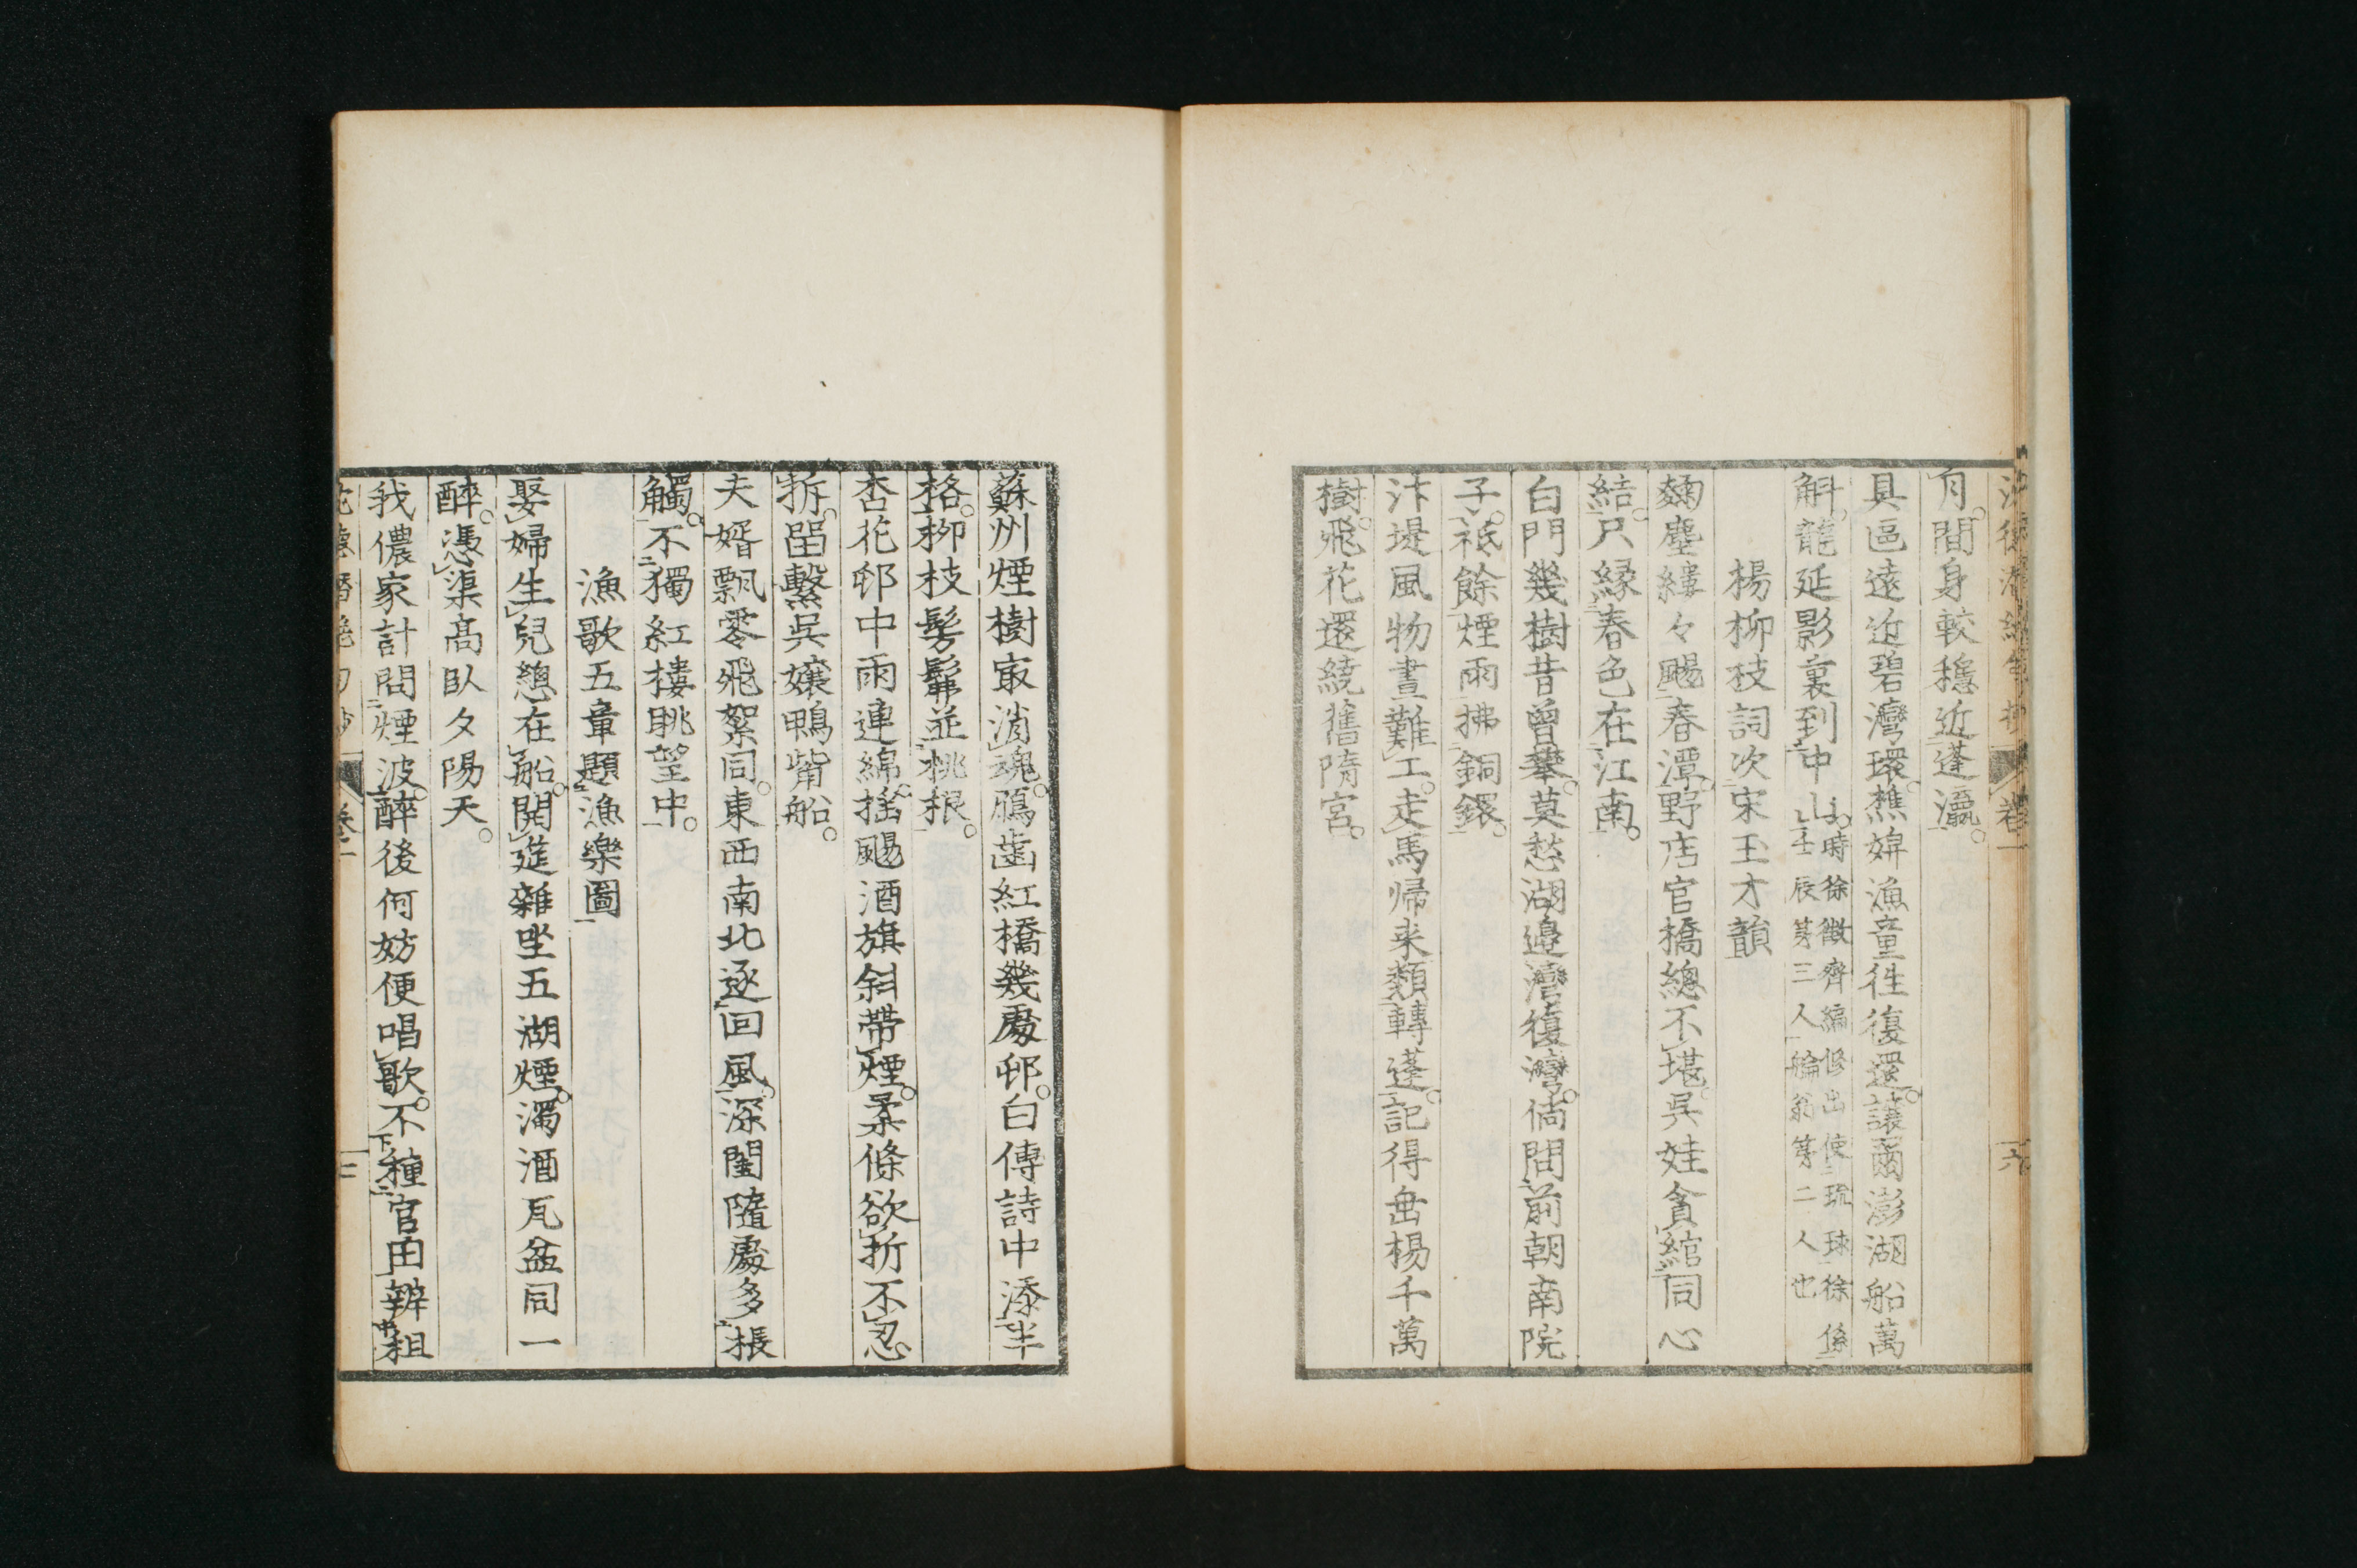 月間身較穩近蓬瀛
具區遠近碧灣環樵婢漁童徃復還讓爾澎湖船萬
斛龍延影裏到中山時徐澂齊編修出使琉球徐係
壬辰第三人艑翁第二人也
楊柳枝詞次宋玉才韻
麹塵縷々颺春潭野店官橋總不堪吳娃貪綰同心
結尺縁春色在江南
白門幾樹昔曾攀莫愁湖邊灣復灣倘問前朝南院
子祗餘煙雨拂銅鐶
汴堤風物畫難工走馬帰来類轉蓬記得垂楊千萬
樹飛花還繞舊隋宮
卷一
六
蘇州煙樹最消魂鴈齒紅橋幾處邨白傳詩中添半
格柳枝髣髴並桃根
杏花邨中雨連綿揺颺酒旗斜帶煙柔條欲折不忍
拆畱繫吳孃鴨觜船
夫婿飄零飛絮同東西南北逐回風深閨隨處多棖
觸不獨紅樓眺望中
漁歌五章題漁樂圖
娶婦生兒總在船開筵雜坐五湖煙濁酒瓦盆同一
醉憑渠高臥夕陽天
我儂家計問煙波醉後何妨便唱歌不種官田辨租
卷一